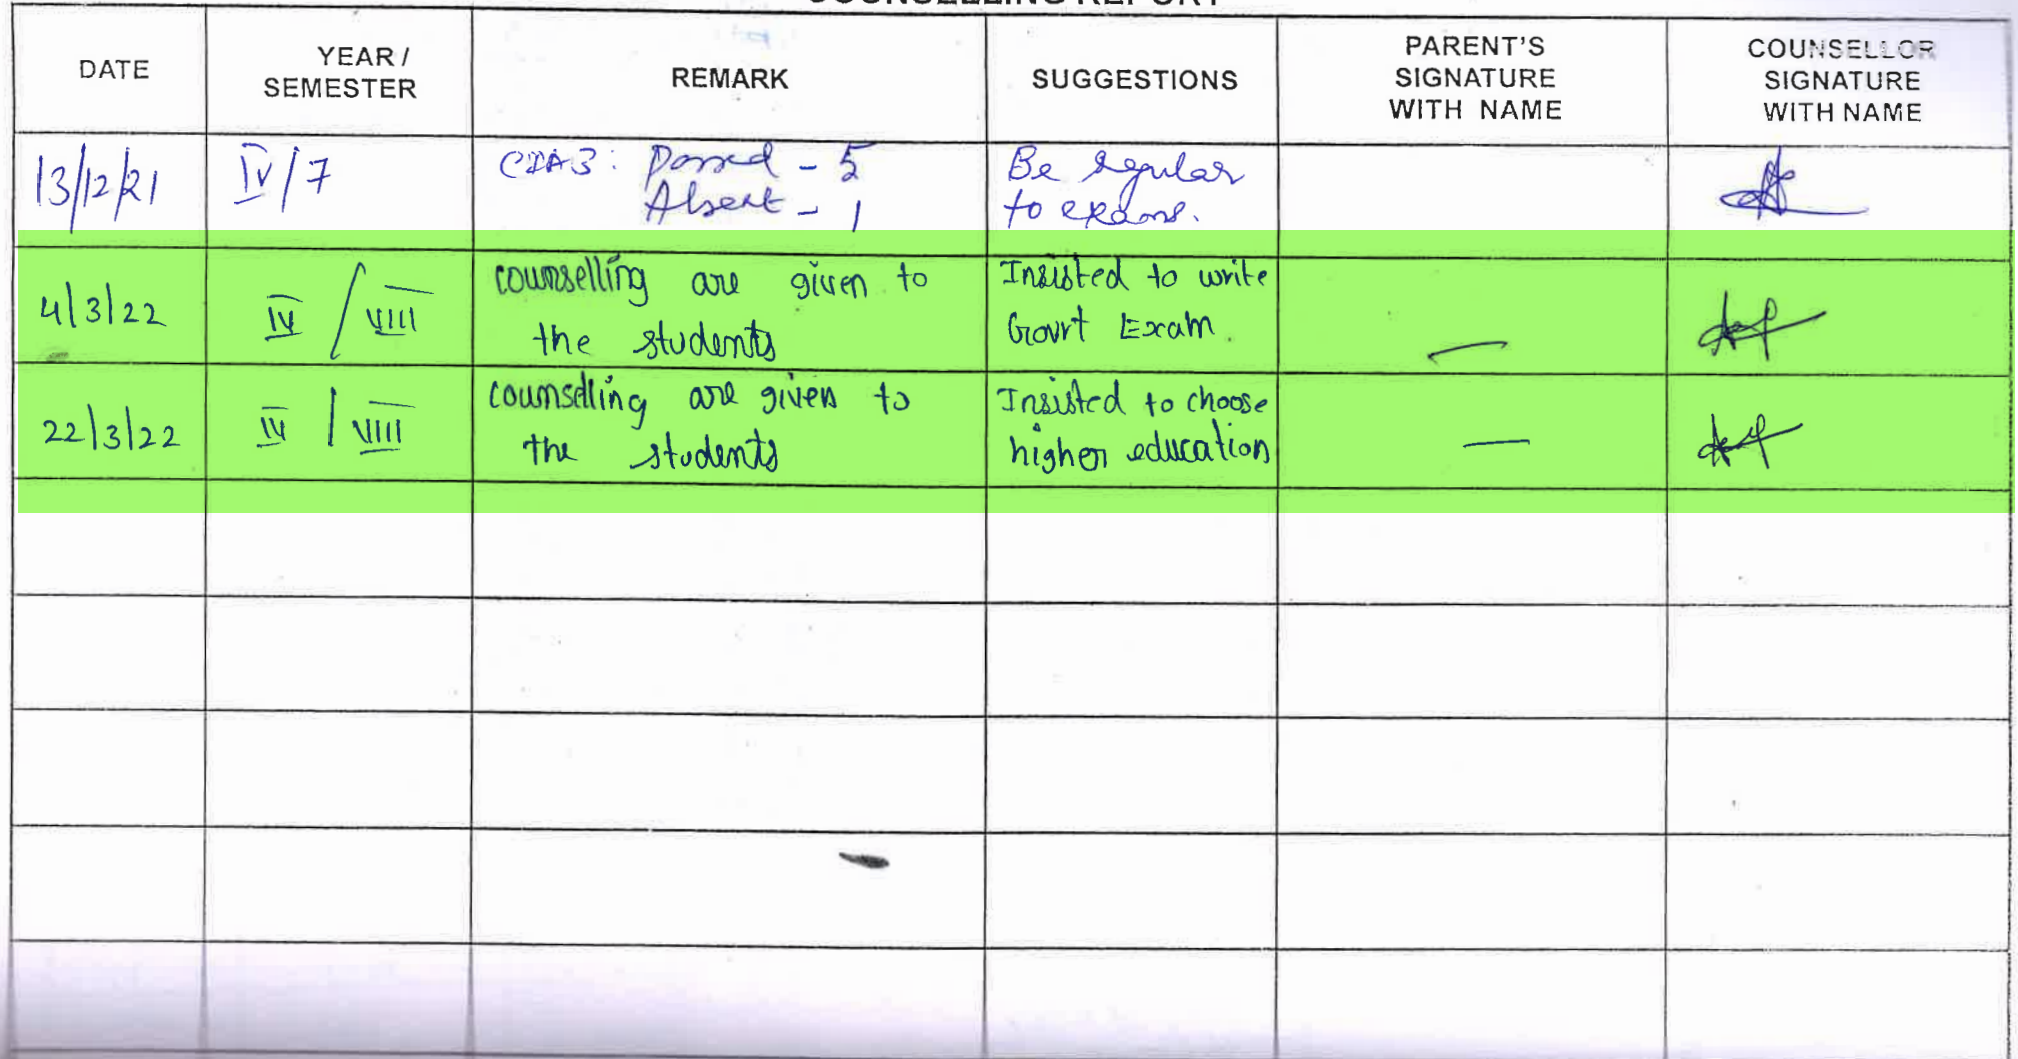 COUNSELLING REPORT
DATE
YEAR /
SEMESTER
REMARK
SUGGESTIONS
PARENT'S
SIGNATURE
WITH NAME
COUNSELLOR
SIGNATURE
WITH NAME
13/12/21
IV/7
CIA3: Passed - 5
Absent - 1
Be regular
to exams.
4/3/22
IV / VIII
counselling are given to
the students
Insisted to write
Govrt Exam.
—
22/3/22
IV / VIII
counselling are given to
the students
Insisted to choose
higher education
—